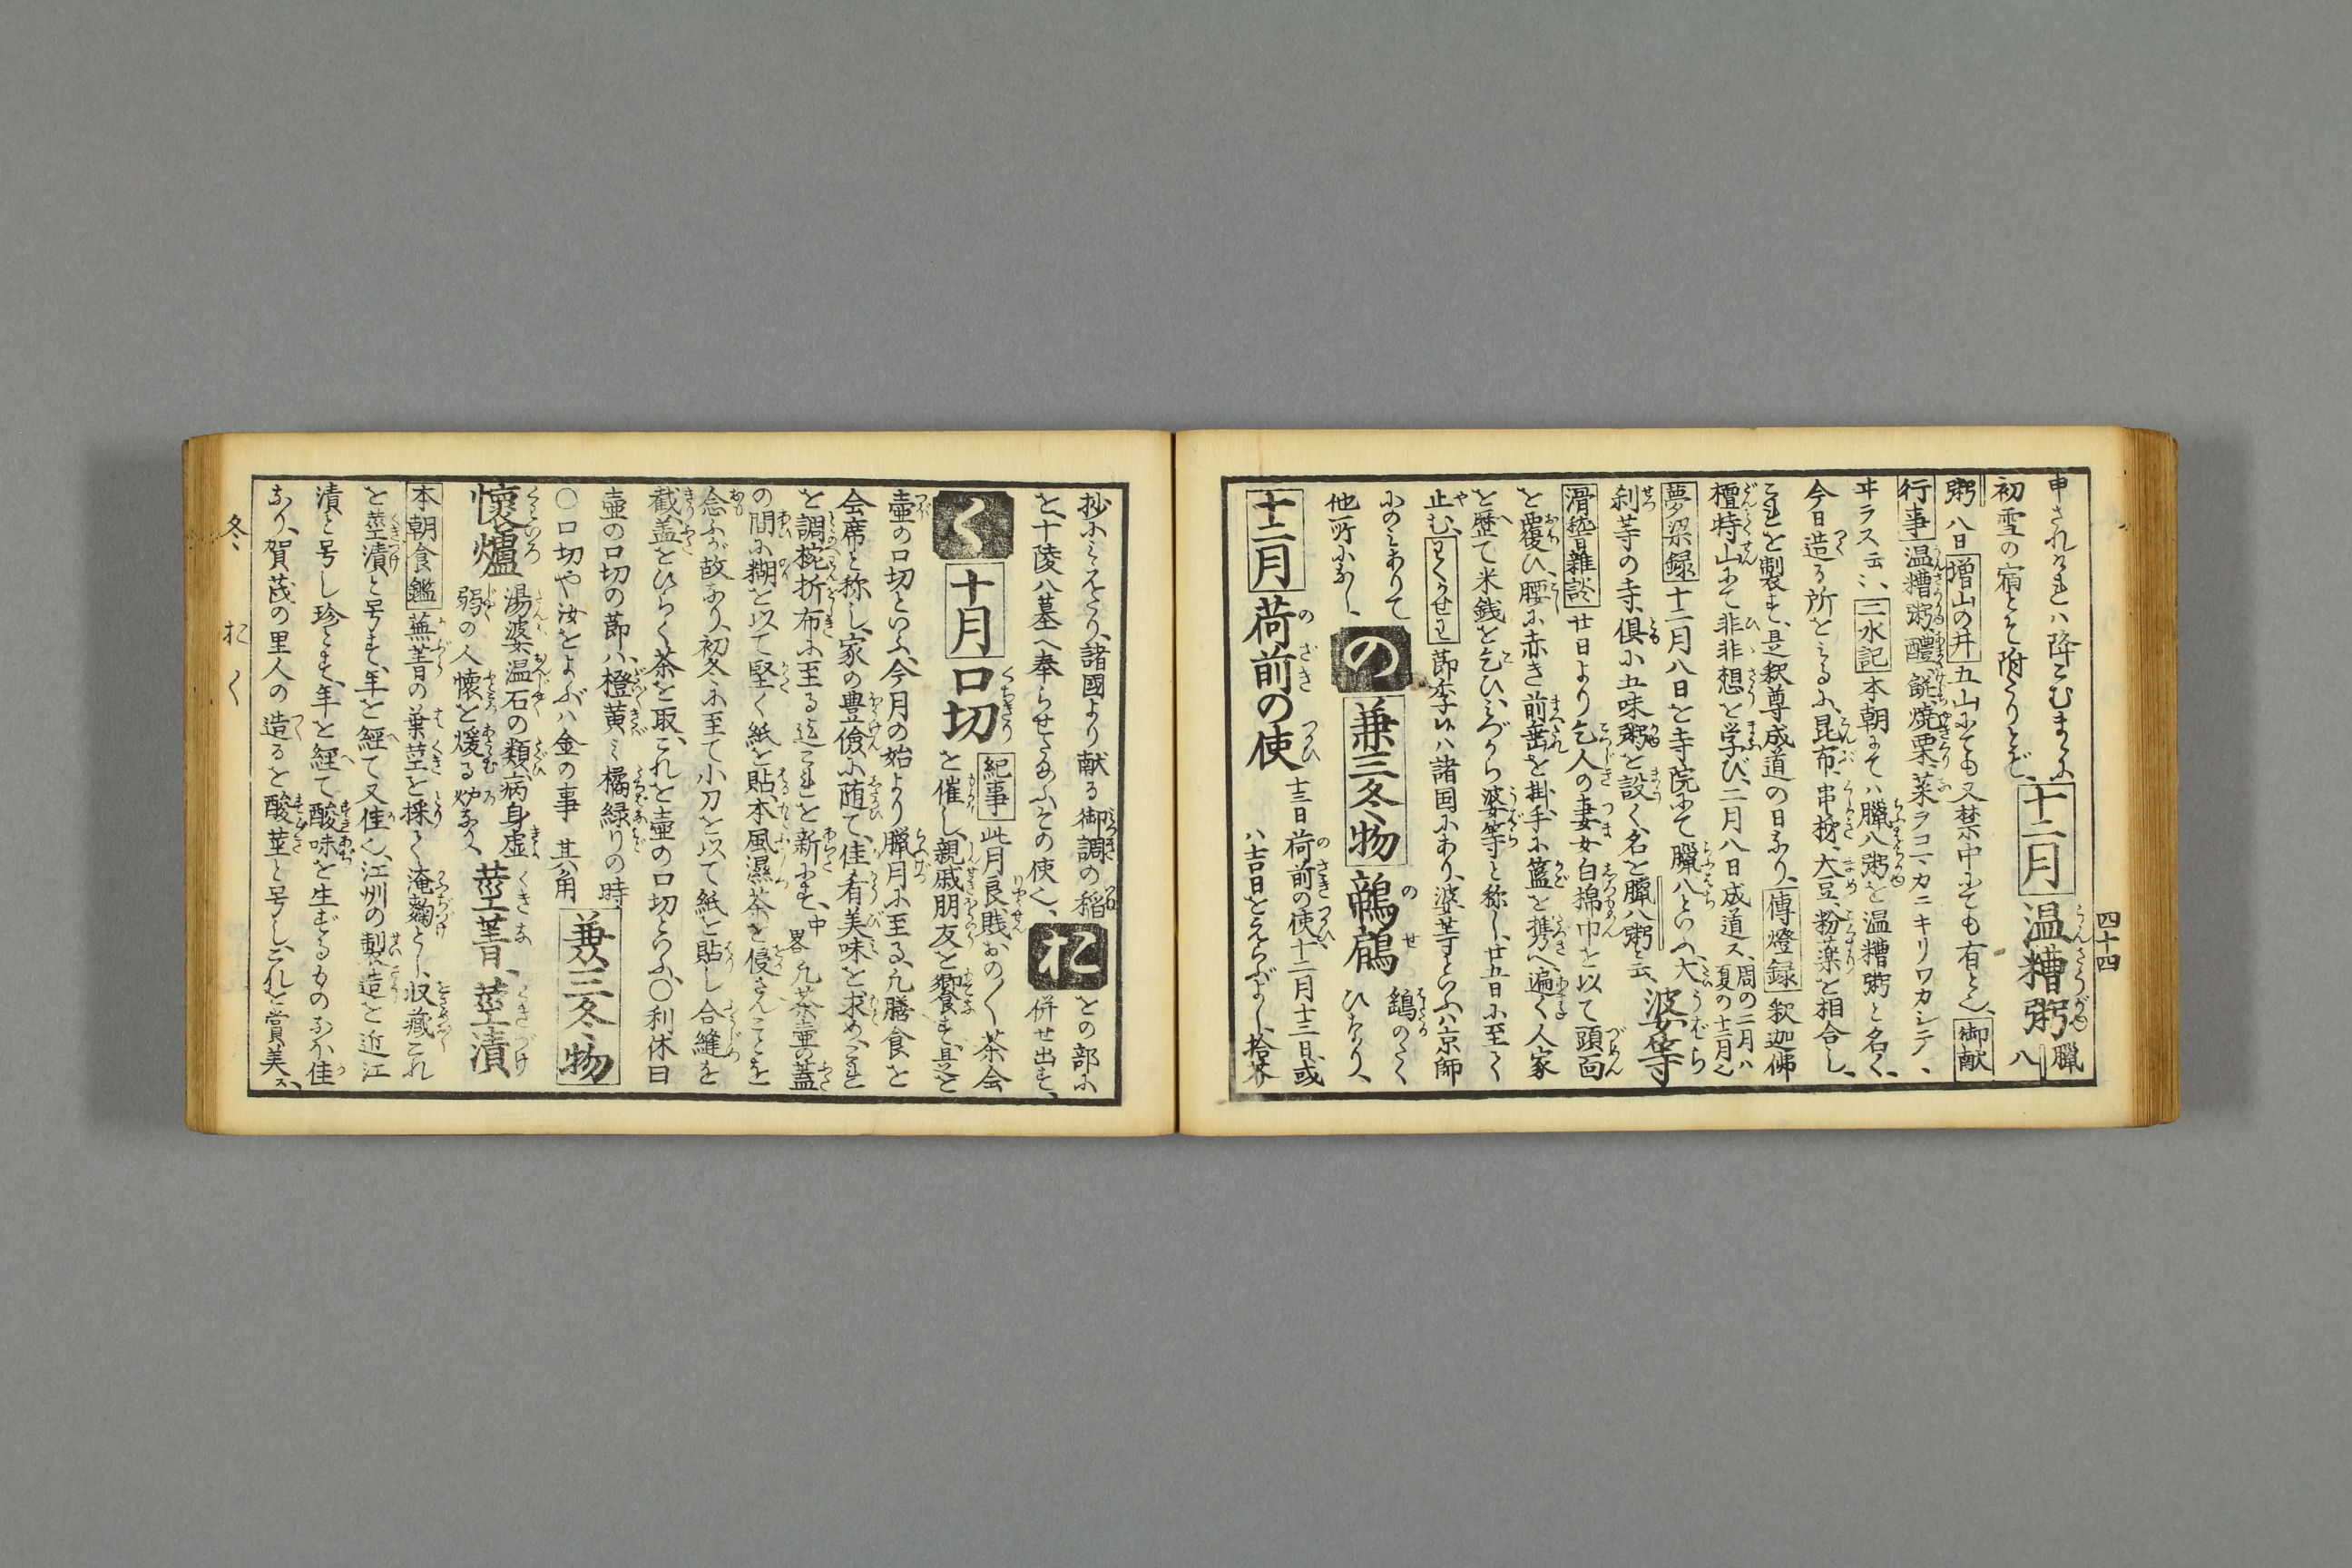 四十四
申されければ降こむまゝに
初雪の宿とぞ附たりとぞ、
十二月 温糟粥 臘八
粥 八日 増山の井 五山にても又禁中にても有と也、 御献
行事 温糟粥、醴、餻、焼栗、菜ヲコマカニキリワカシテ、
ヰラス云々、 二水記 本朝にては臘八粥を温糟粥と名く、
今日造る所をみるに、昆布、串柿、大豆、粉薬を相合し、
これを製す、是釈尊成道の日なり、 傳燈録 釈迦佛
檀特山にて非非想を学び、二月八日成道ス、周の二月ハ夏の十二月也
夢梁録 十二月八日を寺院にて臘八といふ、大
刹等の寺、倶に五味粥を設く、名を臘八粥と云、 婆等
滑稽雑談 廿日より乞人の妻女白綿巾を以て頭面
を覆ひ、腰に赤き前垂を掛、手に籃を携へ、遍く人家
を歴て米銭を乞ひ、みづから婆等と称し、廿五日に至て
止む、 節季ハ諸国にあり、婆等といふハ京師
にのみありて
他所になし、
の 兼三冬物 鵜鴯 鷂のたくひなり、
十二月 荷前の使 十三日 荷前の使、十二月十三日或ハ吉日をえらぶよし、拾芥
抄にみえたり、諸國より献る御調の稲
を、十陵八墓へ奉らせたまふその使也、
お との部に併せ出す、
く 十月 口切 紀事 此月良賤おの〳〵茶会
を催し、親戚朋友を饗す、是を
壺の口切といふ、今月の始より臘月に至る、凡膳食を
会席と称し、家の豊倹に随て、佳肴美味を求め、これ
を調、椀折布に至る迄これを新にす、中畧 凡茶壺の蓋
の間に糊を以て堅く紙を貼、本風濕茶を侵さんことを
念ふが故なり、初冬に至て小刀を以て紙を貼し合縫を
截、盖をひらく、茶を取、これを壺の口切といふ、〇利休曰
壺の口切の節ハ、橙黄ミ橘緑りの時、
〇口切や汝をよぶハ金の事 其角 兼三冬物
懐爐 湯婆温石の類、病身虚
弱の人懐を煖る炉なり、 莖菁、莖漬
本朝食鑑 蕪菁の葉莖を採て淹麹とし、収藏これ
を莖漬と号す、年を經て又佳也、江州の製造を近江
漬と号し珍とす、年を經て酸味を生ずるものなほ佳
なり、賀茂の里人の造るを酸莖と号し、これを賞美ス、
冬 おく